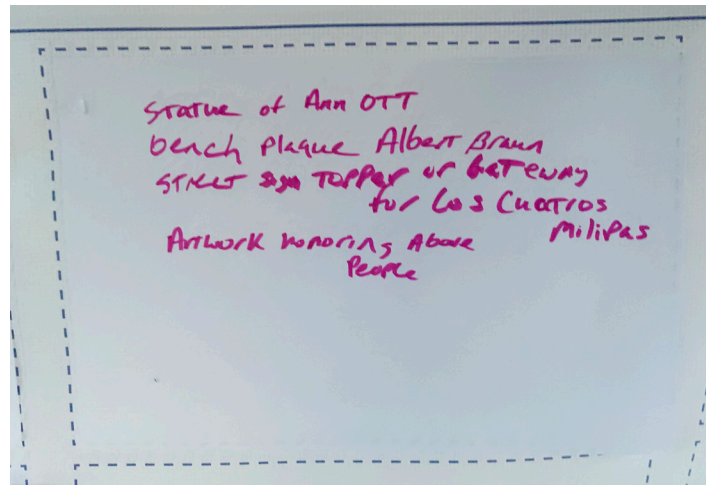 Statue of Ann OTT
bench Plaque Albert Braun
STREET sign TOPPER or GATEWAY
for Los Cuatros
Milipas
Artwork honoring Above
People